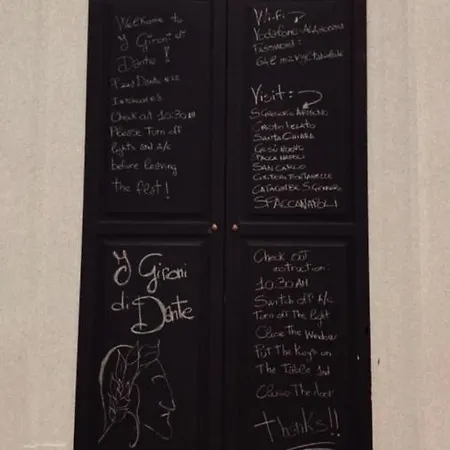 Welcome to
I Gironi di
Dante!
Check out 10:30 AM
Please Turn off
lights and A/c
before leaving
the flat!
Wi-Fi
Password:
Visit:
S. Gregorio Armeno
Santa Chiara
Gesù Nuovo
San Carlo
Catacombe S. Gennaro
SPACCANAPOLI
I Gironi
di
Dante
Check out
10:30 AM
Switch off A/c
Turn off The light
Close The Window
Put The Keys on
The Table and
Close The door
Thanks!!